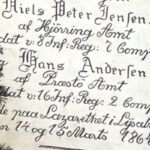 Niels Peter Jensen
af Hjörring Amt
dat v: 8 Inf: Reg: 7 Comp
Hans Andersen
af Præstö Amt
dat v: 16 Inf: Reg: 2 Comp
de paa Lazarethet i
14 og 15 Marts 186